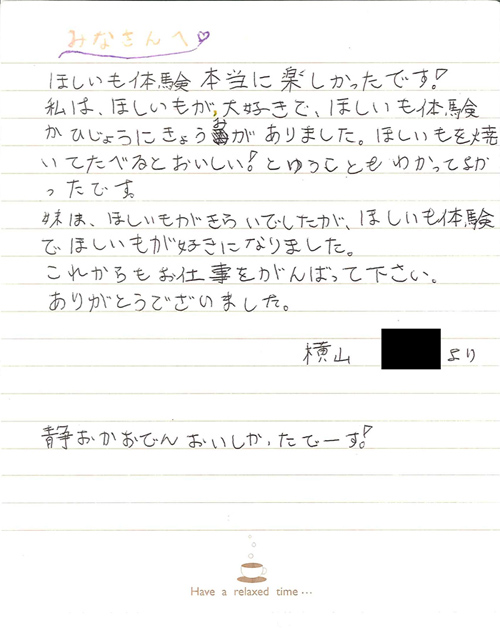 みなさんへ♡
ほしいも体験 本当に楽しかったです!
私は、ほしいもが、大好きで、ほしいも体験
がひじょうにきょうみがありました。ほしいもを焼
いてたべるとおいしい!とゆうこともわかってよか
ったです。
妹は、ほしいもがきらいでしたが、ほしいも体験
でほしいもが好きになりました。
これからもお仕事をがんばって下さい。
ありがとうございました。
横山 より
静おかおでんおいしかったでーす!
Have a relaxed time…